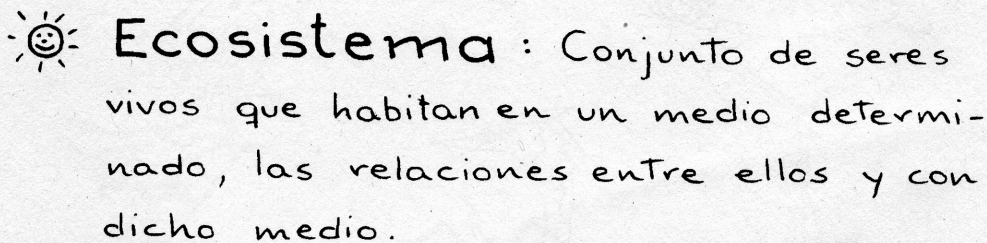 Ecosistema : Conjunto de seres
vivos que habitan en un medio determi-
nado, las relaciones entre ellos y con
dicho medio.